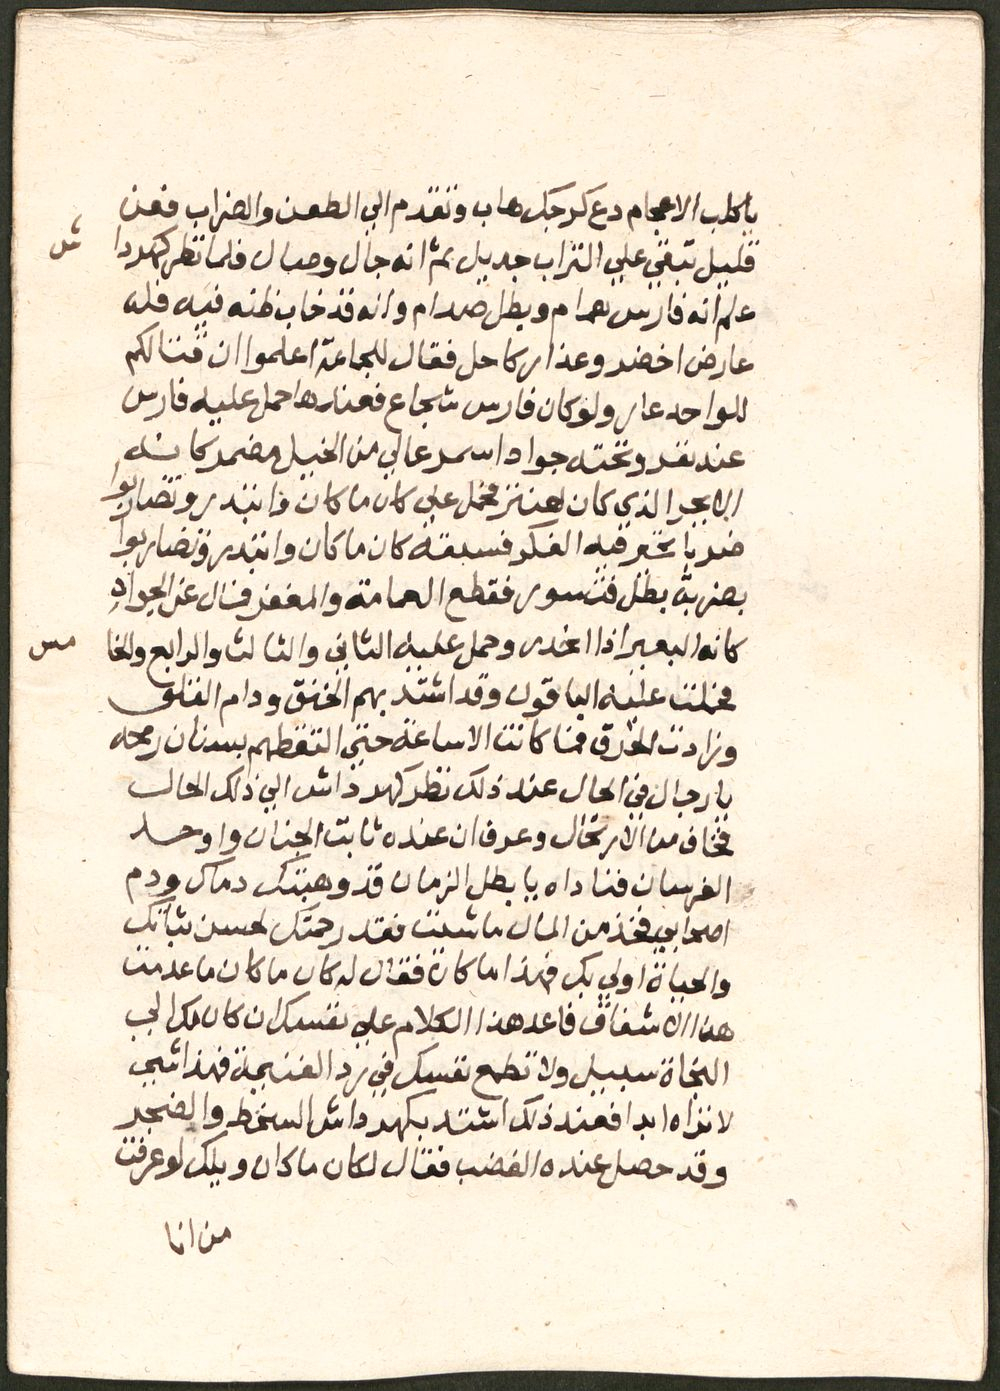 ياكلب الاعجام دع كد جكلهاب وتقدم الي الطعن والضراب فعن
قليل تبقي علي التراب جديل ثم انه جال وصال فلما نظر كهرداش
علم انه فارس همام وبطل صدام وانه قد خاب ظنه فيه فله
عارض اخضر وعذار كاحل فقال للجماعة اعلموا ان قتالكم
للواحد عار ولو كان فارس شجاع فعندها حمل عليه فارس
عند نفر وتحته جواد اسمر عالي من الخيل مضمر كانه
الابجر الذي كان لعنتر فحمل علي كان ماكان وانتدر وتضاربوا
ضربا تحير فيه الفكر فسبقه كان ماكان وانتدر وتضاربوا
بضربة بطل قسور فقطع العمامة والمغفر فمال عن الجواد
كانه البعير اذا انحدر وحمل عليه الثاني والثالث والرابع والخامس
فحملت عليه الباقون وقد اشتد بهم الخنق ودام القلق
وزادت الحرق فما كانت الا ساعة حتي التقطهم بسنان رمحه
يا رجال في الحال عند ذلك نظر كهرداش الي ذلك الحال
فخاف من الارتحال وعرف ان عنده ثابت الجنان واوحد
الفرسان فناداه يا بطل الزمان قد وهبتك دمك ودم
اصحابي فخذ من المال ما شئت فقد رحمتك لحسن ثباتك
والحياة اولي بك فهذا ما كان فقال له كان ماكان ما عدمت
هذا الاشفاق فاعد هذا الكلام علي نفسك ان كان لك الي
النجاة سبيل ولا تطمع نفسك في رد الغنيمة فهذا شي
لا تراه ابدا فعند ذلك اشتد بكهرداش السخط والضجر
وقد حصل عنده الغضب فقال لكان ماكان ويلك لو عرفت
من انا